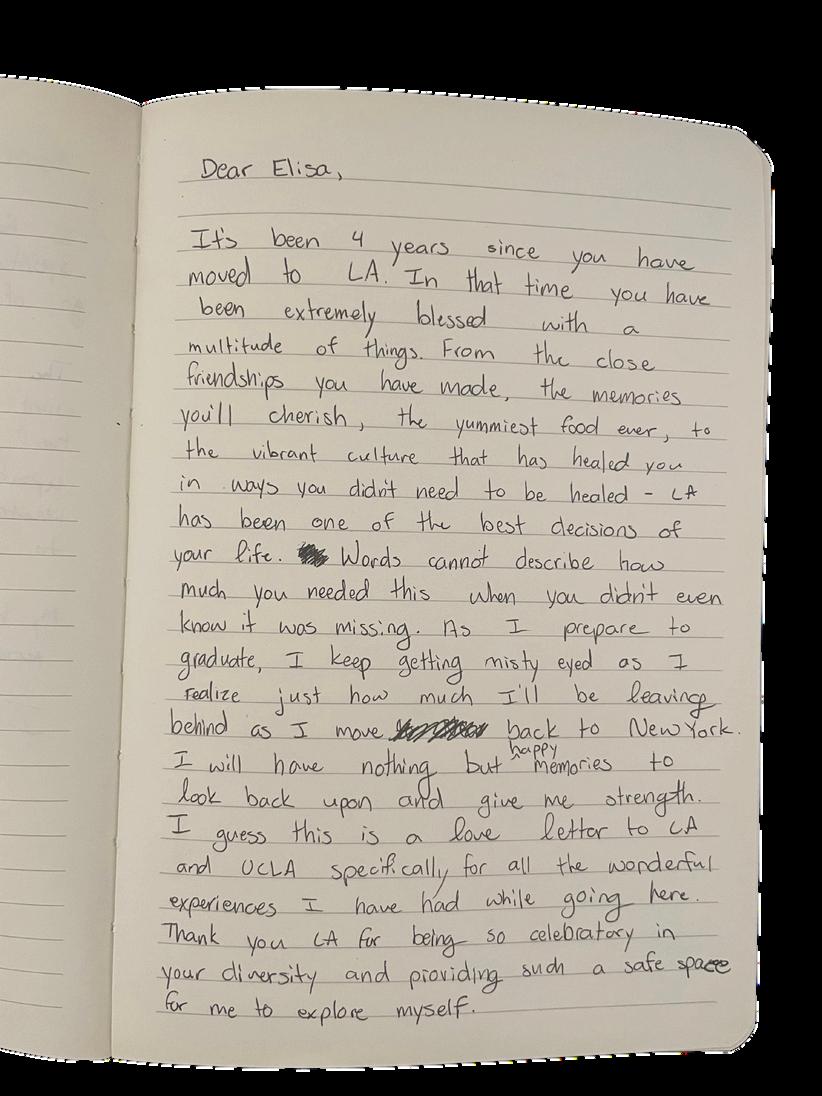 Dear Elisa,
It's been 4 years since you have
moved to LA. In that time you have
been extremely blessed with a
multitude of things. From the close
friendships you have made, the memories
you'll cherish, the yummiest food ever, to
the vibrant culture that has healed you
in ways you didn't need to be healed - LA
has been one of the best decisions of
your life. Words cannot describe how
much you needed this when you didn't even
know it was missing. As I prepare to
graduate, I keep getting misty eyed as I
realize just how much I'll be leaving
behind as I move back to New York.
I will have nothing but happy memories to
look back upon and give me strength.
I guess this is a love letter to LA
and UCLA specifically for all the wonderful
experiences I have had while going here.
Thank you LA for being so celebratory in
your diversity and providing such a safe space
for me to explore myself.